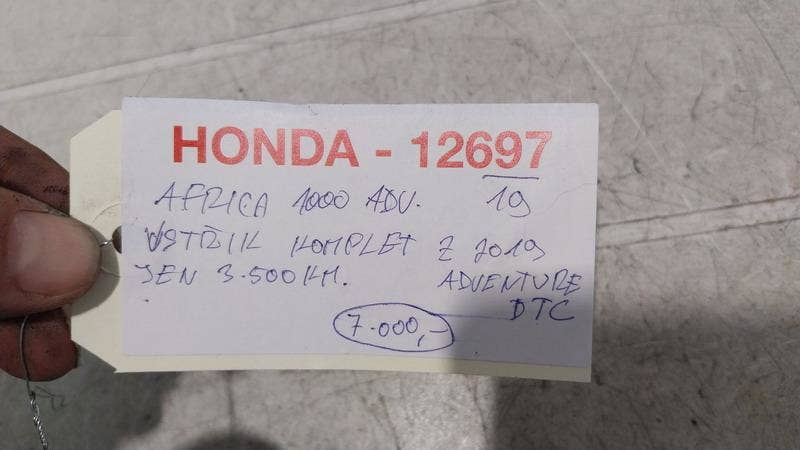 HONDA - 12697
AFRICA 1000 ADV. 19
VSTŘIK KOMPLET Z 2019
JEN 3.500 KM. ADVENTURE
DTC
7.000,-